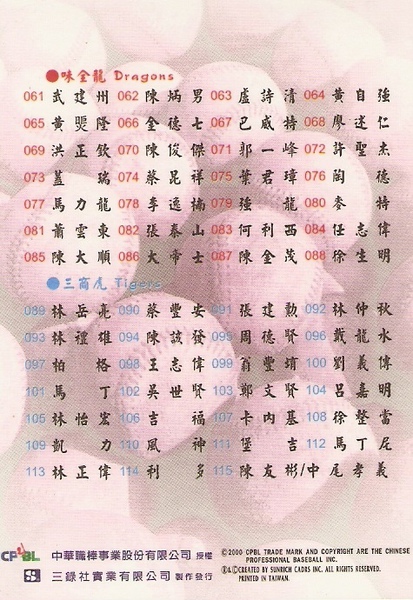 ●味全龍 Dragons
061 武建州 062 陳炳男 063 盧詩清 064 黃自強
065 黃煚隆 066 金德士 067 巴威特 068 廖述仁
069 洪正欽 070 陳俊傑 071 郭一峰 072 許聖杰
073 蓋瑞 074 蔡昆祥 075 葉君璋 076 陶德
077 馬力龍 078 李逸楠 079 強龍 080 麥特
081 蕭雲東 082 張泰山 083 何利西 084 任志偉
085 陳大順 086 大帝士 087 陳金茂 088 徐生明
●三商虎 Tigers
089 林岳亮 090 蔡豐安 091 張建勲 092 林仲秋
093 林禮雄 094 陳該發 095 周德賢 096 戴龍水
097 柏格 098 王志偉 099 翁豐堉 100 劉義傳
101 馬丁 102 吳世賢 103 鄭文賢 104 呂嘉明
105 林怡宏 106 吉福 107 卡內基 108 徐整當
109 凱力 110 風神 111 堡吉 112 馬丁尼
113 林正偉 114 利多 115 陳友彬/中尾孝義
CPBL 中華職棒事業股份有限公司 授權
三錄社實業有限公司 製作發行
©2000 CPBL TRADE MARK AND COPYRIGHT ARE THE CHINESE
PROFESSIONAL BASEBALL INC.
CREATED BY SUNRICH CADRS INC. ALL RIGHTS RESERVED.
PRINTED IN TAIWAN.